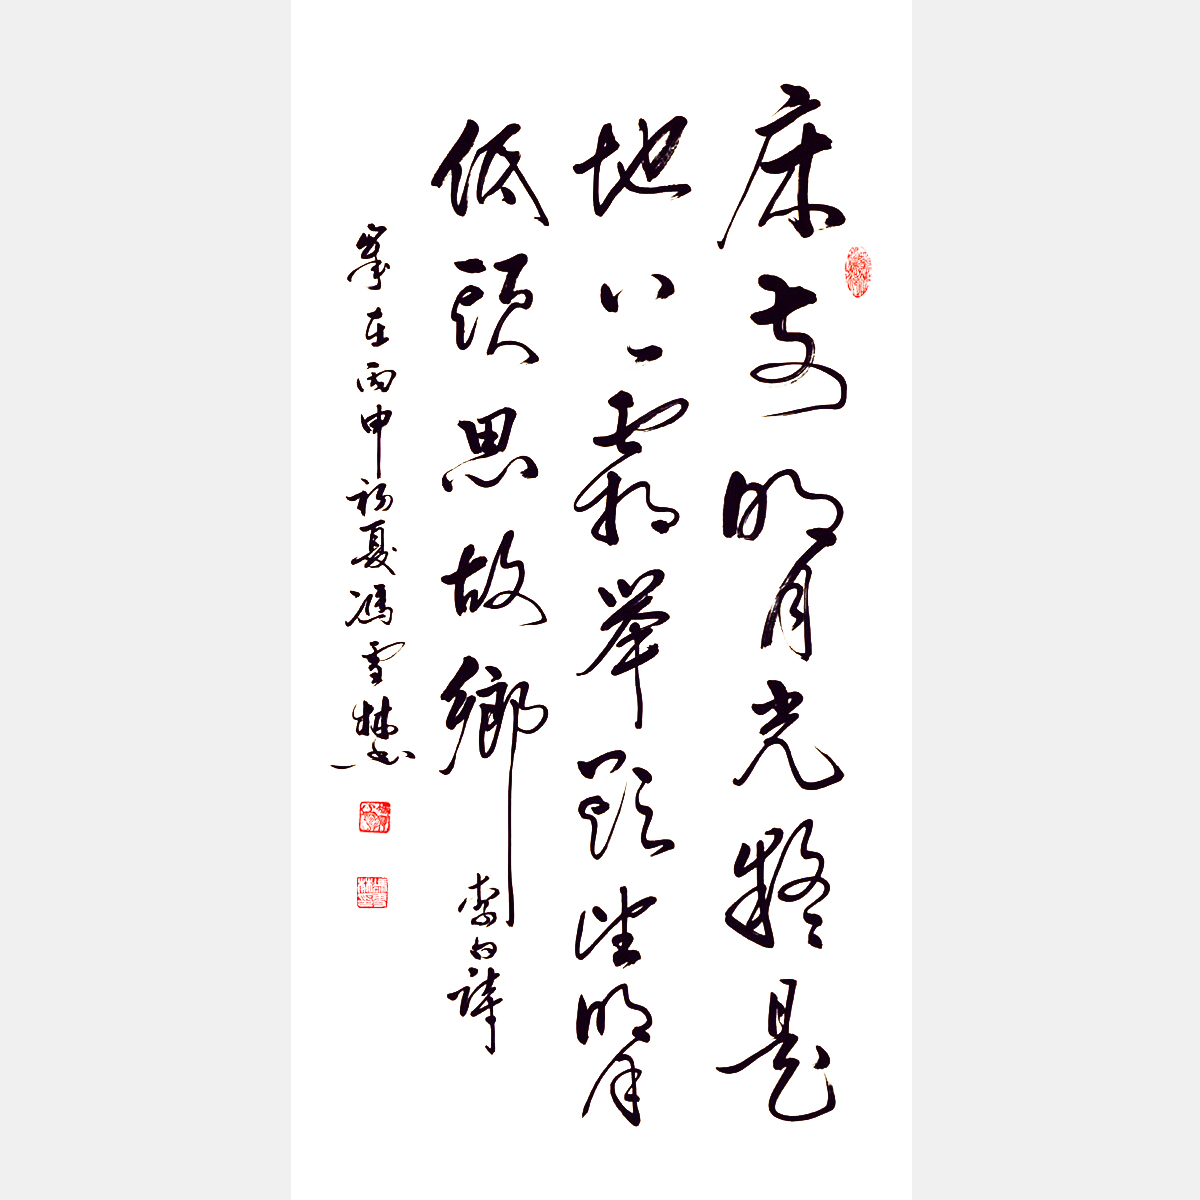 床前明月光疑是
地上霜举頭望明月
低頭思故鄉 李白詩
歲在丙申初夏馮雪林書